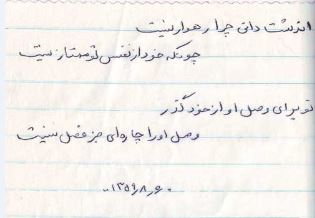 اندیشت دانی چرا رهوار نیست
چونکه خود از نفس تو ممتاز نیست
تو برای وصل او از خود گذر
وصل او را چاره‌ای جز فصل نیست
۱۳۵۹/۸/۶